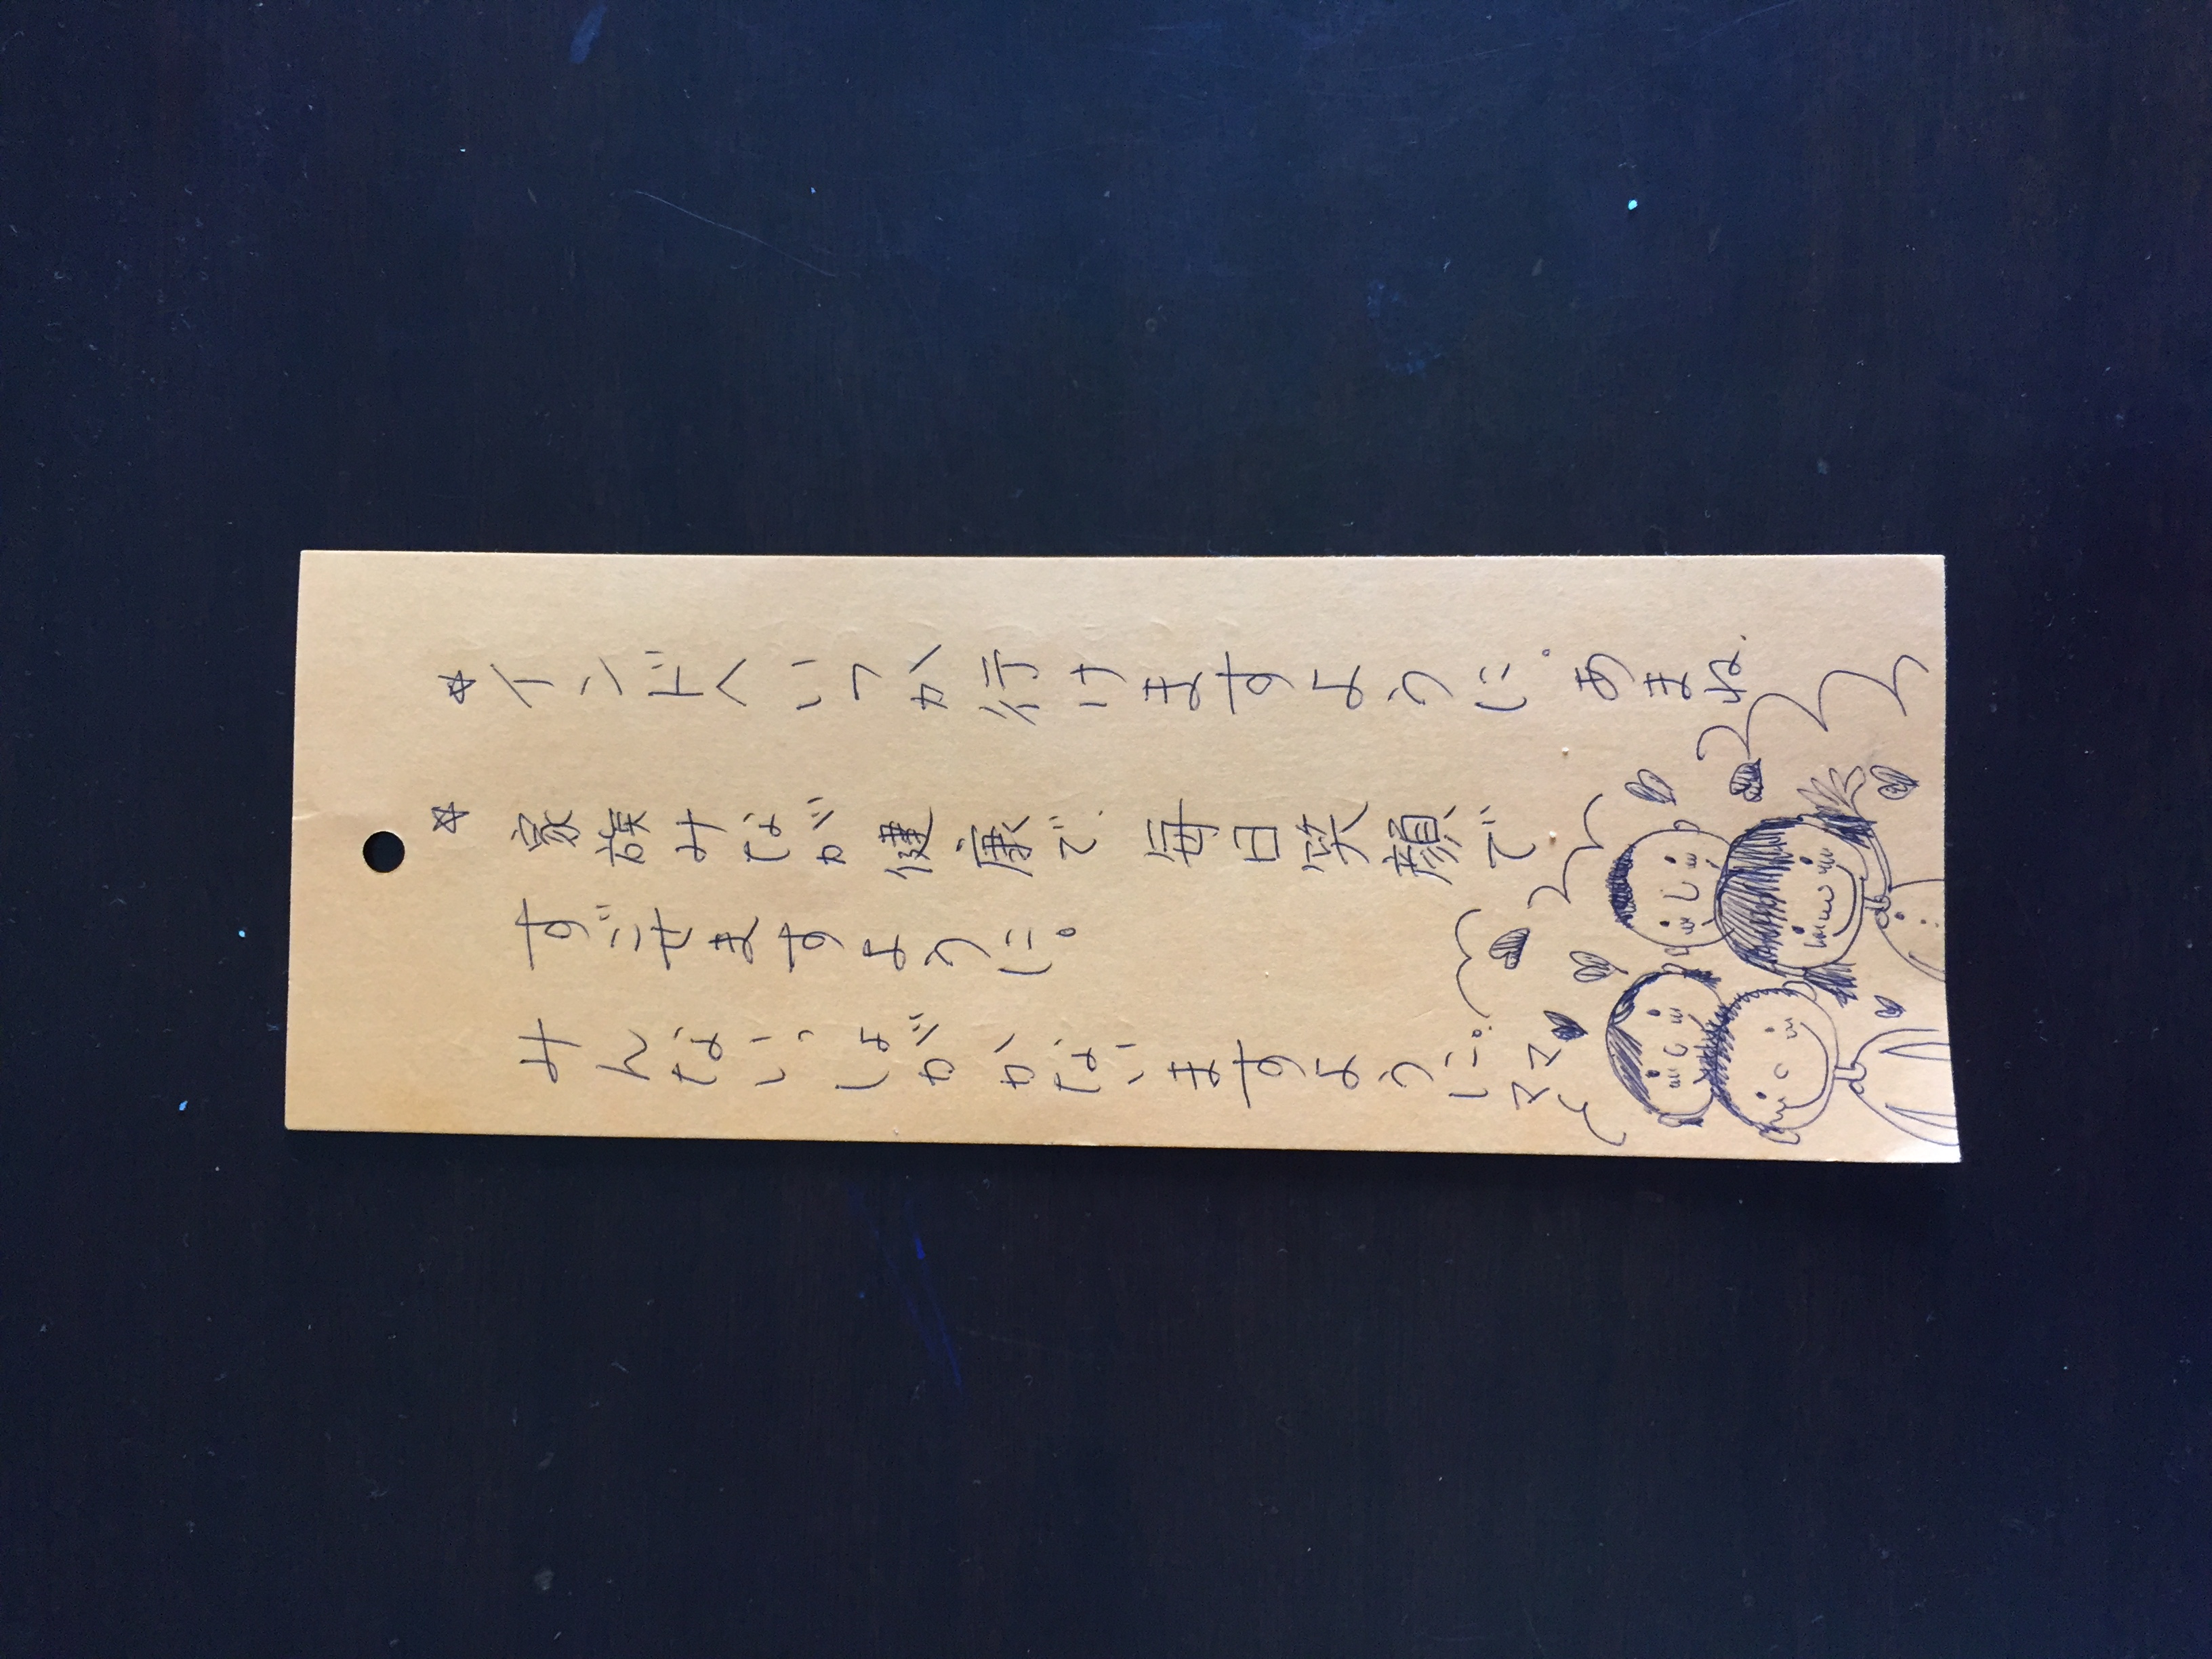 ☆インドへいつか行けますように。あまね.
☆家族みなが健康で、毎日笑顔で
すごせますように。
みんな がかないますように。ママ